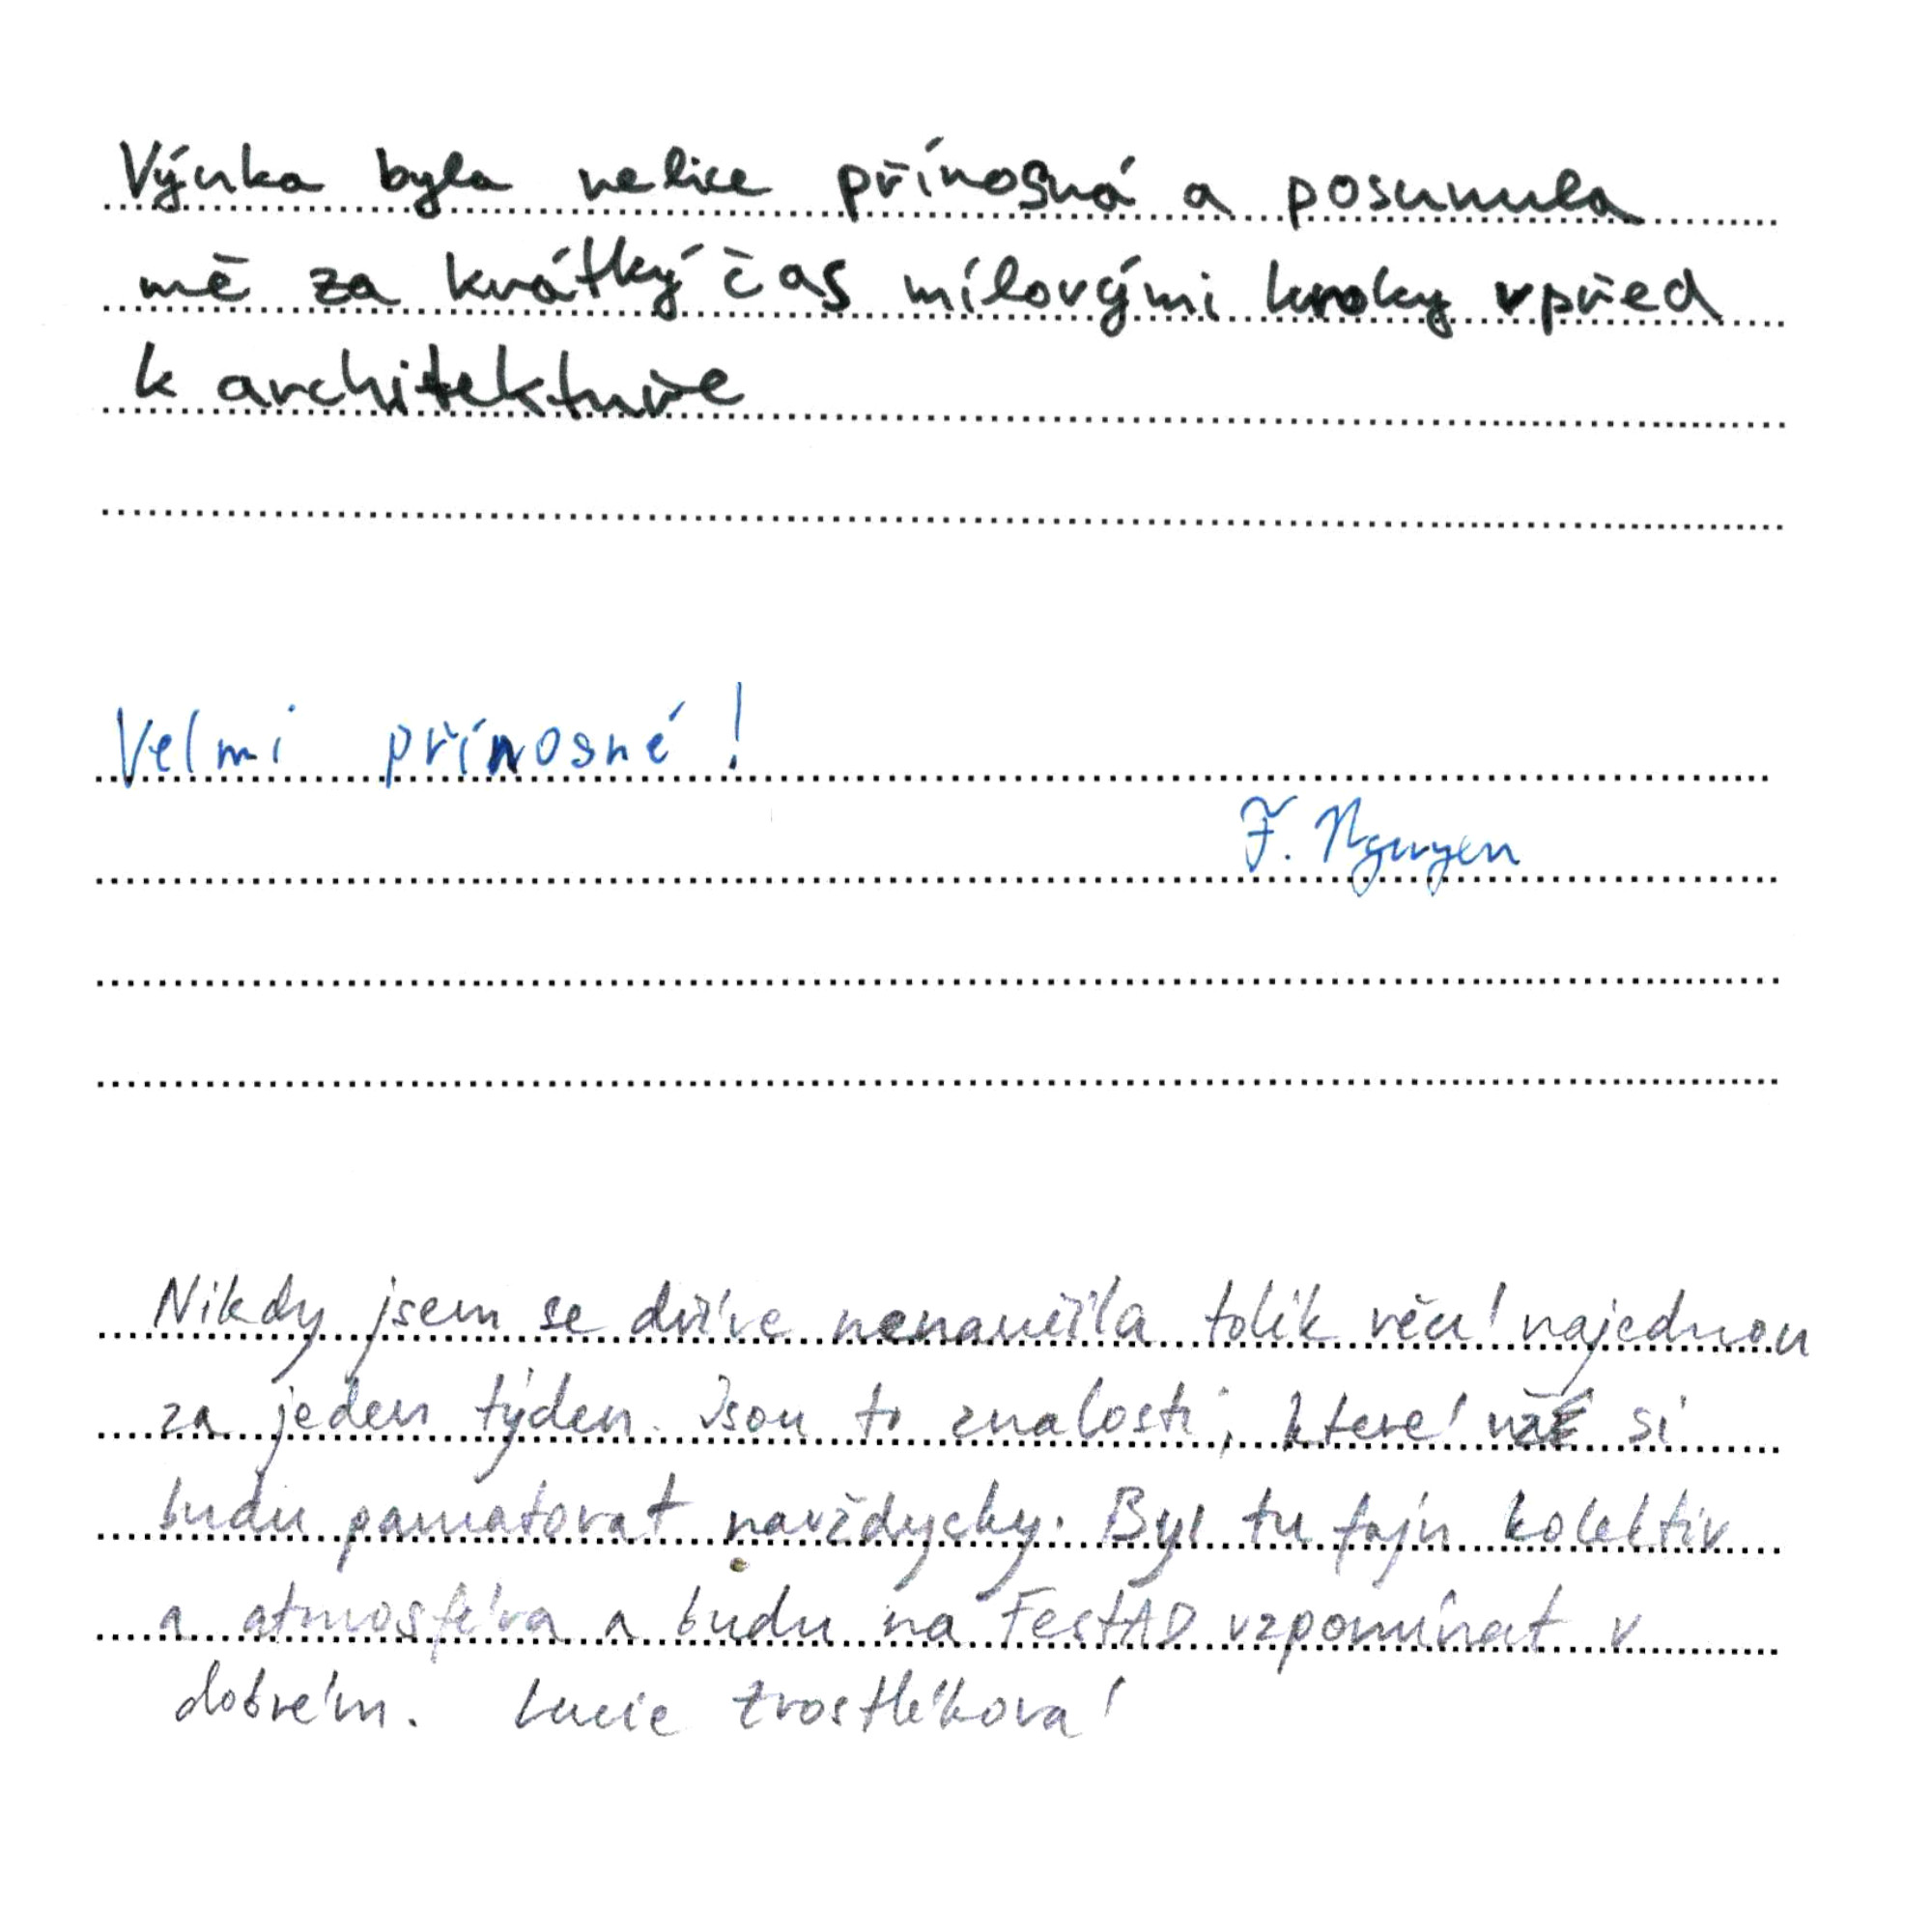 Výuka byla velice přínosná a posunula
mě za krátký čas mílovými kroky vpřed
k architektuře
Velmi přínosné!
F. Nguyen
Nikdy jsem se dříve nenaučila tolik věcí najednou
za jeden týden. Jsou to znalosti, které si
budu pamatovat navždycky. Byl tu fajn kolektiv
a atmosféra a budu na FestAD vzpomínat v
dobrém. Lucie